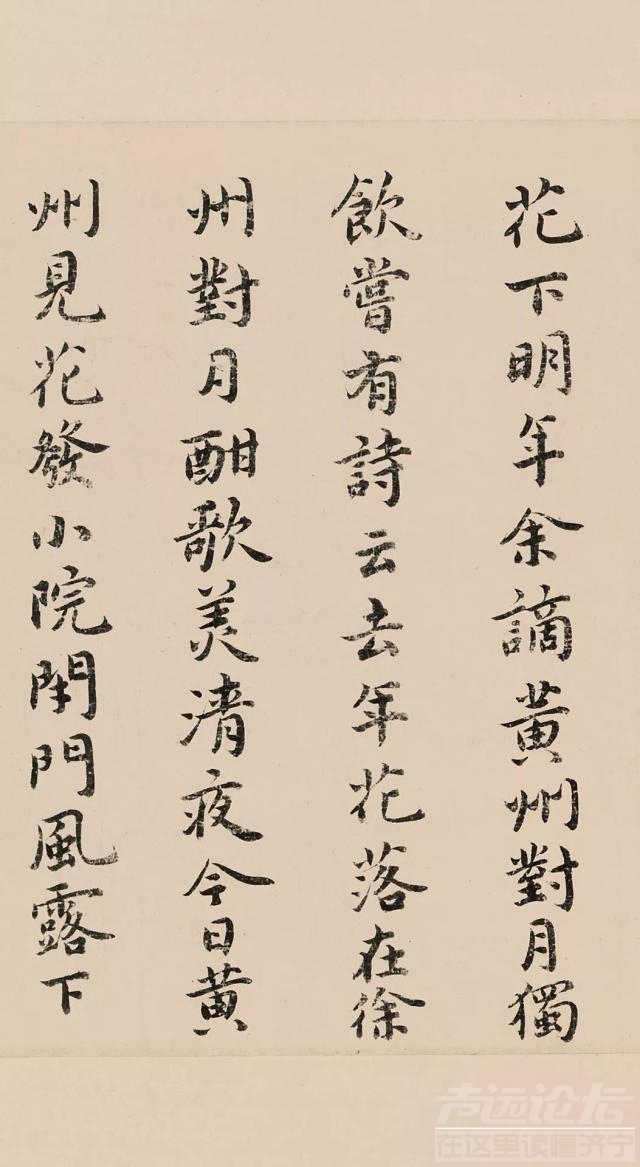 花下明年余謫黄州對月獨
飲嘗有詩云去年花落在徐
州對月酣歌美清夜今日黄
州見花發小院閉門風露下
声远论坛
在这里读懂济宁